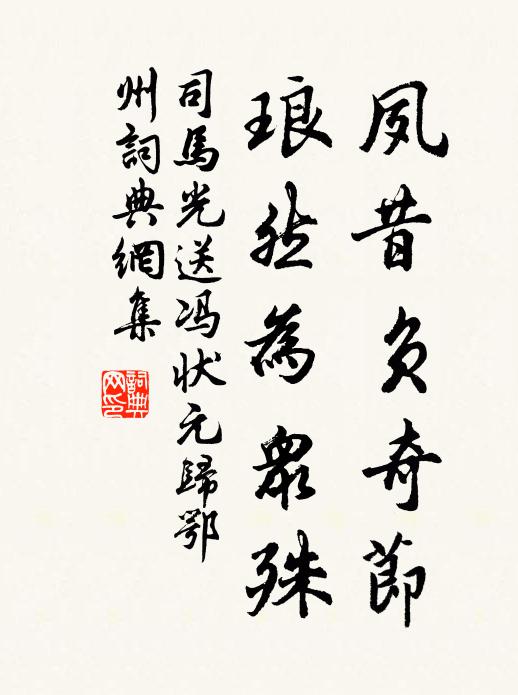 夙昔负奇節
琅然為眾殊
司馬光送冯状元歸鄂
州詞典網集
詞典
网印